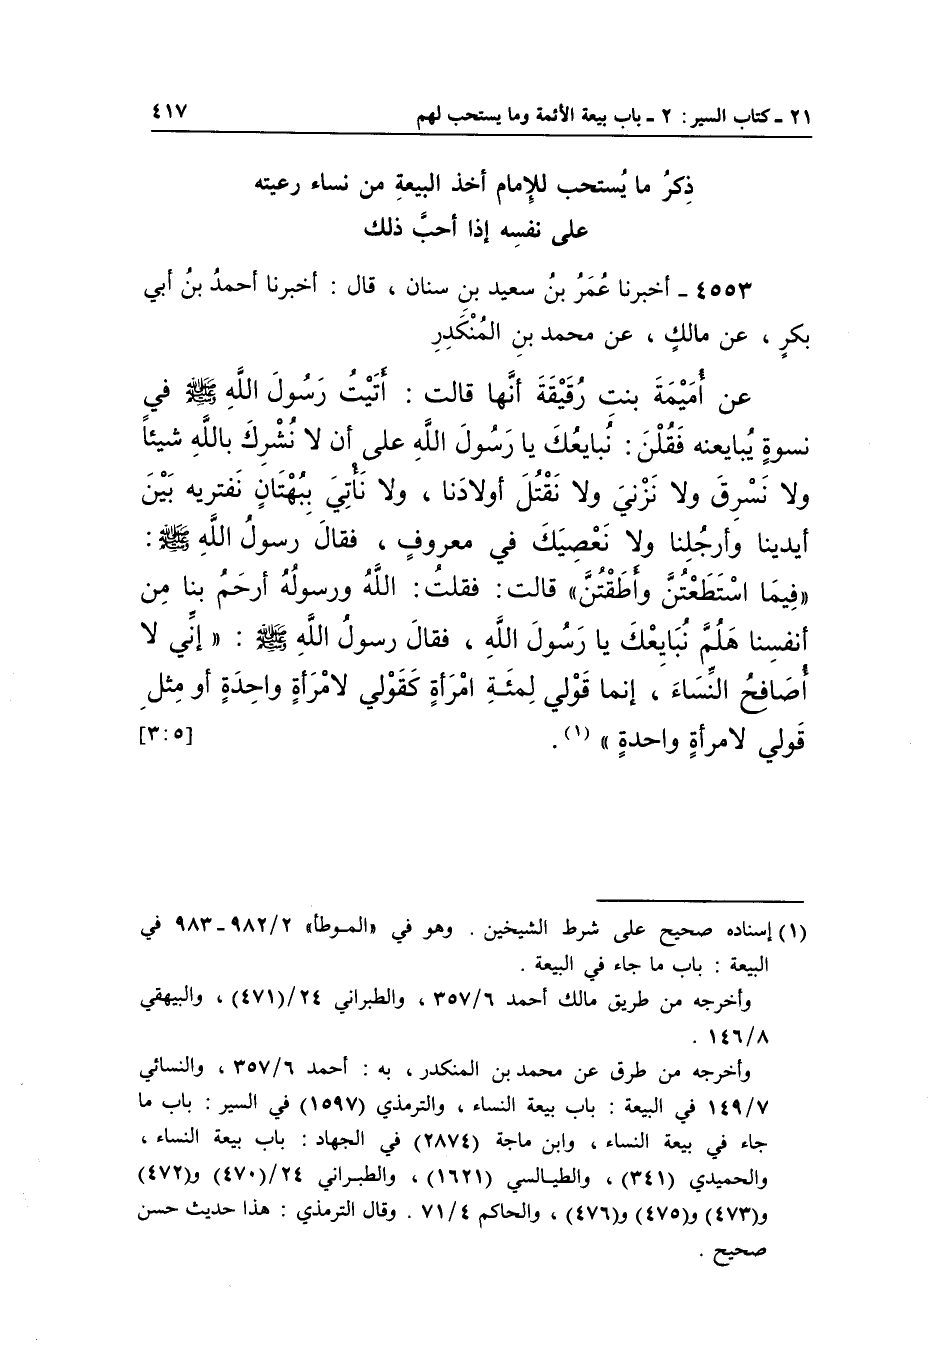 ٢١ - كتاب السير : ٢ - باب بيعة الأئمة وما يستحب لهم ٤١٧
ذِكرُ ما يُستحب للإِمام أخذ البيعةِ من نساء رعيته
على نفسِه إذا أحبَّ ذلك
٤٥٥٣ - أخبرنا عُمَرُ بنُ سعيد بنِ سنان ، قال : أخبرنا أحمدُ بنُ أبي
بكرٍ ، عن مالكٍ ، عن محمد بنِ المُنْكَدِرِ
عن أُمَيْمَةَ بنتِ رُقَيْقَةَ أنَّها قالت : أَتَيْتُ رَسُولَ اللَّهِ ﷺ في
نسوةٍ يُبايعنه فَقُلْنَ : نُبايعُكَ يا رَسُولَ اللَّه على أن لا نُشْرِكَ باللَّهِ شيئاً
ولا نَسْرِقَ ولا نَزْنيَ ولا نَقْتُلَ أولادَنا ، ولا نَأْتِيَ بِبُهْتَانٍ نَفتريه بَيْنَ
أيدينا وأرجُلِنا ولا نَعْصِيَكَ في معروفٍ ، فقالَ رسولُ اللَّهِ ﷺ :
«فِيمَا اسْتَطَعْتُنَّ وأَطَقْتُنَّ» قالت : فقلتُ : اللَّهُ ورسولُهُ أرحَمُ بنا مِن
أنفسِنا هَلُمَّ نُبَايِعْكَ يا رَسُولَ اللَّه ، فقالَ رسولُ اللَّهِ ﷺ : « إنِّي لا
أُصَافِحُ النِّسَاءَ ، إنما قَوْلي لِمئَةِ امْرَأةٍ كَقَوْلي لامْرَأةٍ واحِدَةٍ أو مِثلِ
قَولي لامرأةٍ واحدةٍ » (١) . [٣:٥]
(١) إسناده صحيح على شرط الشيخين . وهو في «الموطأ» ٩٨٢/٢-٩٨٣ في
البيعة : باب ما جاء في البيعة .
وأخرجه من طريق مالك أحمد ٣٥٧/٦ ، والطبراني ٢٤/(٤٧١) ، والبيهقي
١٤٦/٨ .
وأخرجه من طرق عن محمد بن المنكدر ، به : أحمد ٣٥٧/٦ ، والنسائي
١٤٩/٧ في البيعة : باب بيعة النساء ، والترمذي (١٥٩٧) في السير : باب ما
جاء في بيعة النساء ، وابن ماجة (٢٨٧٤) في الجهاد : باب بيعة النساء ،
والحميدي (٣٤١) ، والطيالسي (١٦٢١) ، والطبراني ٢٤/(٤٧٠) و(٤٧٢)
و(٤٧٣) و(٤٧٥) و(٤٧٦) ، والحاكم ٧١/٤ . وقال الترمذي : هذا حديث حسن
صحيح .